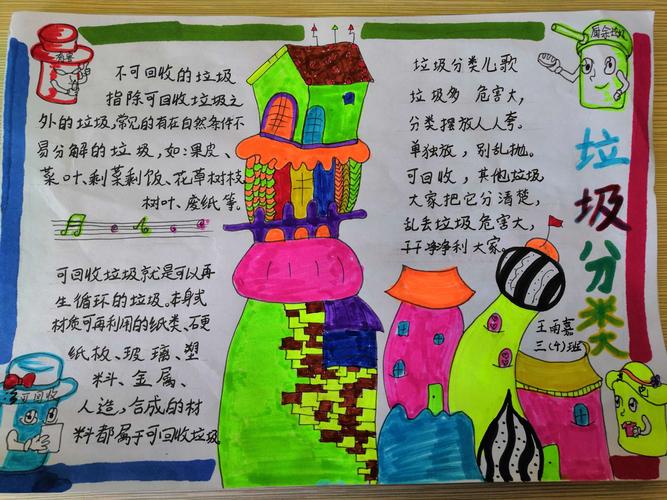 有害
不可回收的垃圾
指除可回收垃圾之
外的垃圾,常见的有在自然条件下
易分解的垃圾,如:果皮、
菜叶、剩菜剩饭、花草树枝
树叶、废纸等。
可回收垃圾就是可以再
生循环的垃圾、本身或
材质可再利用的纸类、硬
纸板、玻璃、塑
料、金属、
人造,合成的材
料都属于可回收垃圾
可回收
垃圾分类儿歌
垃圾多 危害大,
分类摆放人人夸。
单独放,别乱抛。
可回收,其他垃圾
大家把它分清楚,
乱丢垃圾危害大,
干干净净利大家。
厨余垃圾
垃圾分类
王雨嘉
三(4)班